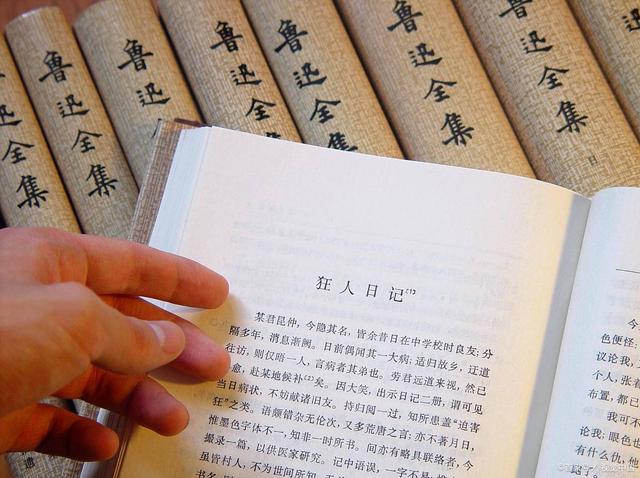 迅全集
鲁迅全集
鲁迅
鲁迅全
鲁迅全集
鲁迅全集
鲁迅全集
狂人日记〔1〕
某君昆仲，今隐其名，皆余昔日在中学校时良友；分
隔多年，消息渐阙。日前偶闻其一大病；适归故乡，迂道
往访，则仅晤一人，言病者其弟也。劳君远道来视，然已
愈，赴某地候补〔2〕矣。因大笑，出示日记二册，谓可见
当日病状，不妨献诸旧友。持归阅一过，知所患盖“迫害
狂”之类。语颇错杂无伦次，又多荒唐之言；亦不著月日，
惟墨色字体不一，知非一时所书。间亦有略具联络者，今
撮录一篇，以供医家研究。记中语误，一字不易；
虽皆村人，不为世间所知，无
书名，
今
色便怪：
议论我，
个人，张
布置，都已
我可不
论我；眼色也
有什么仇，他
尾了。